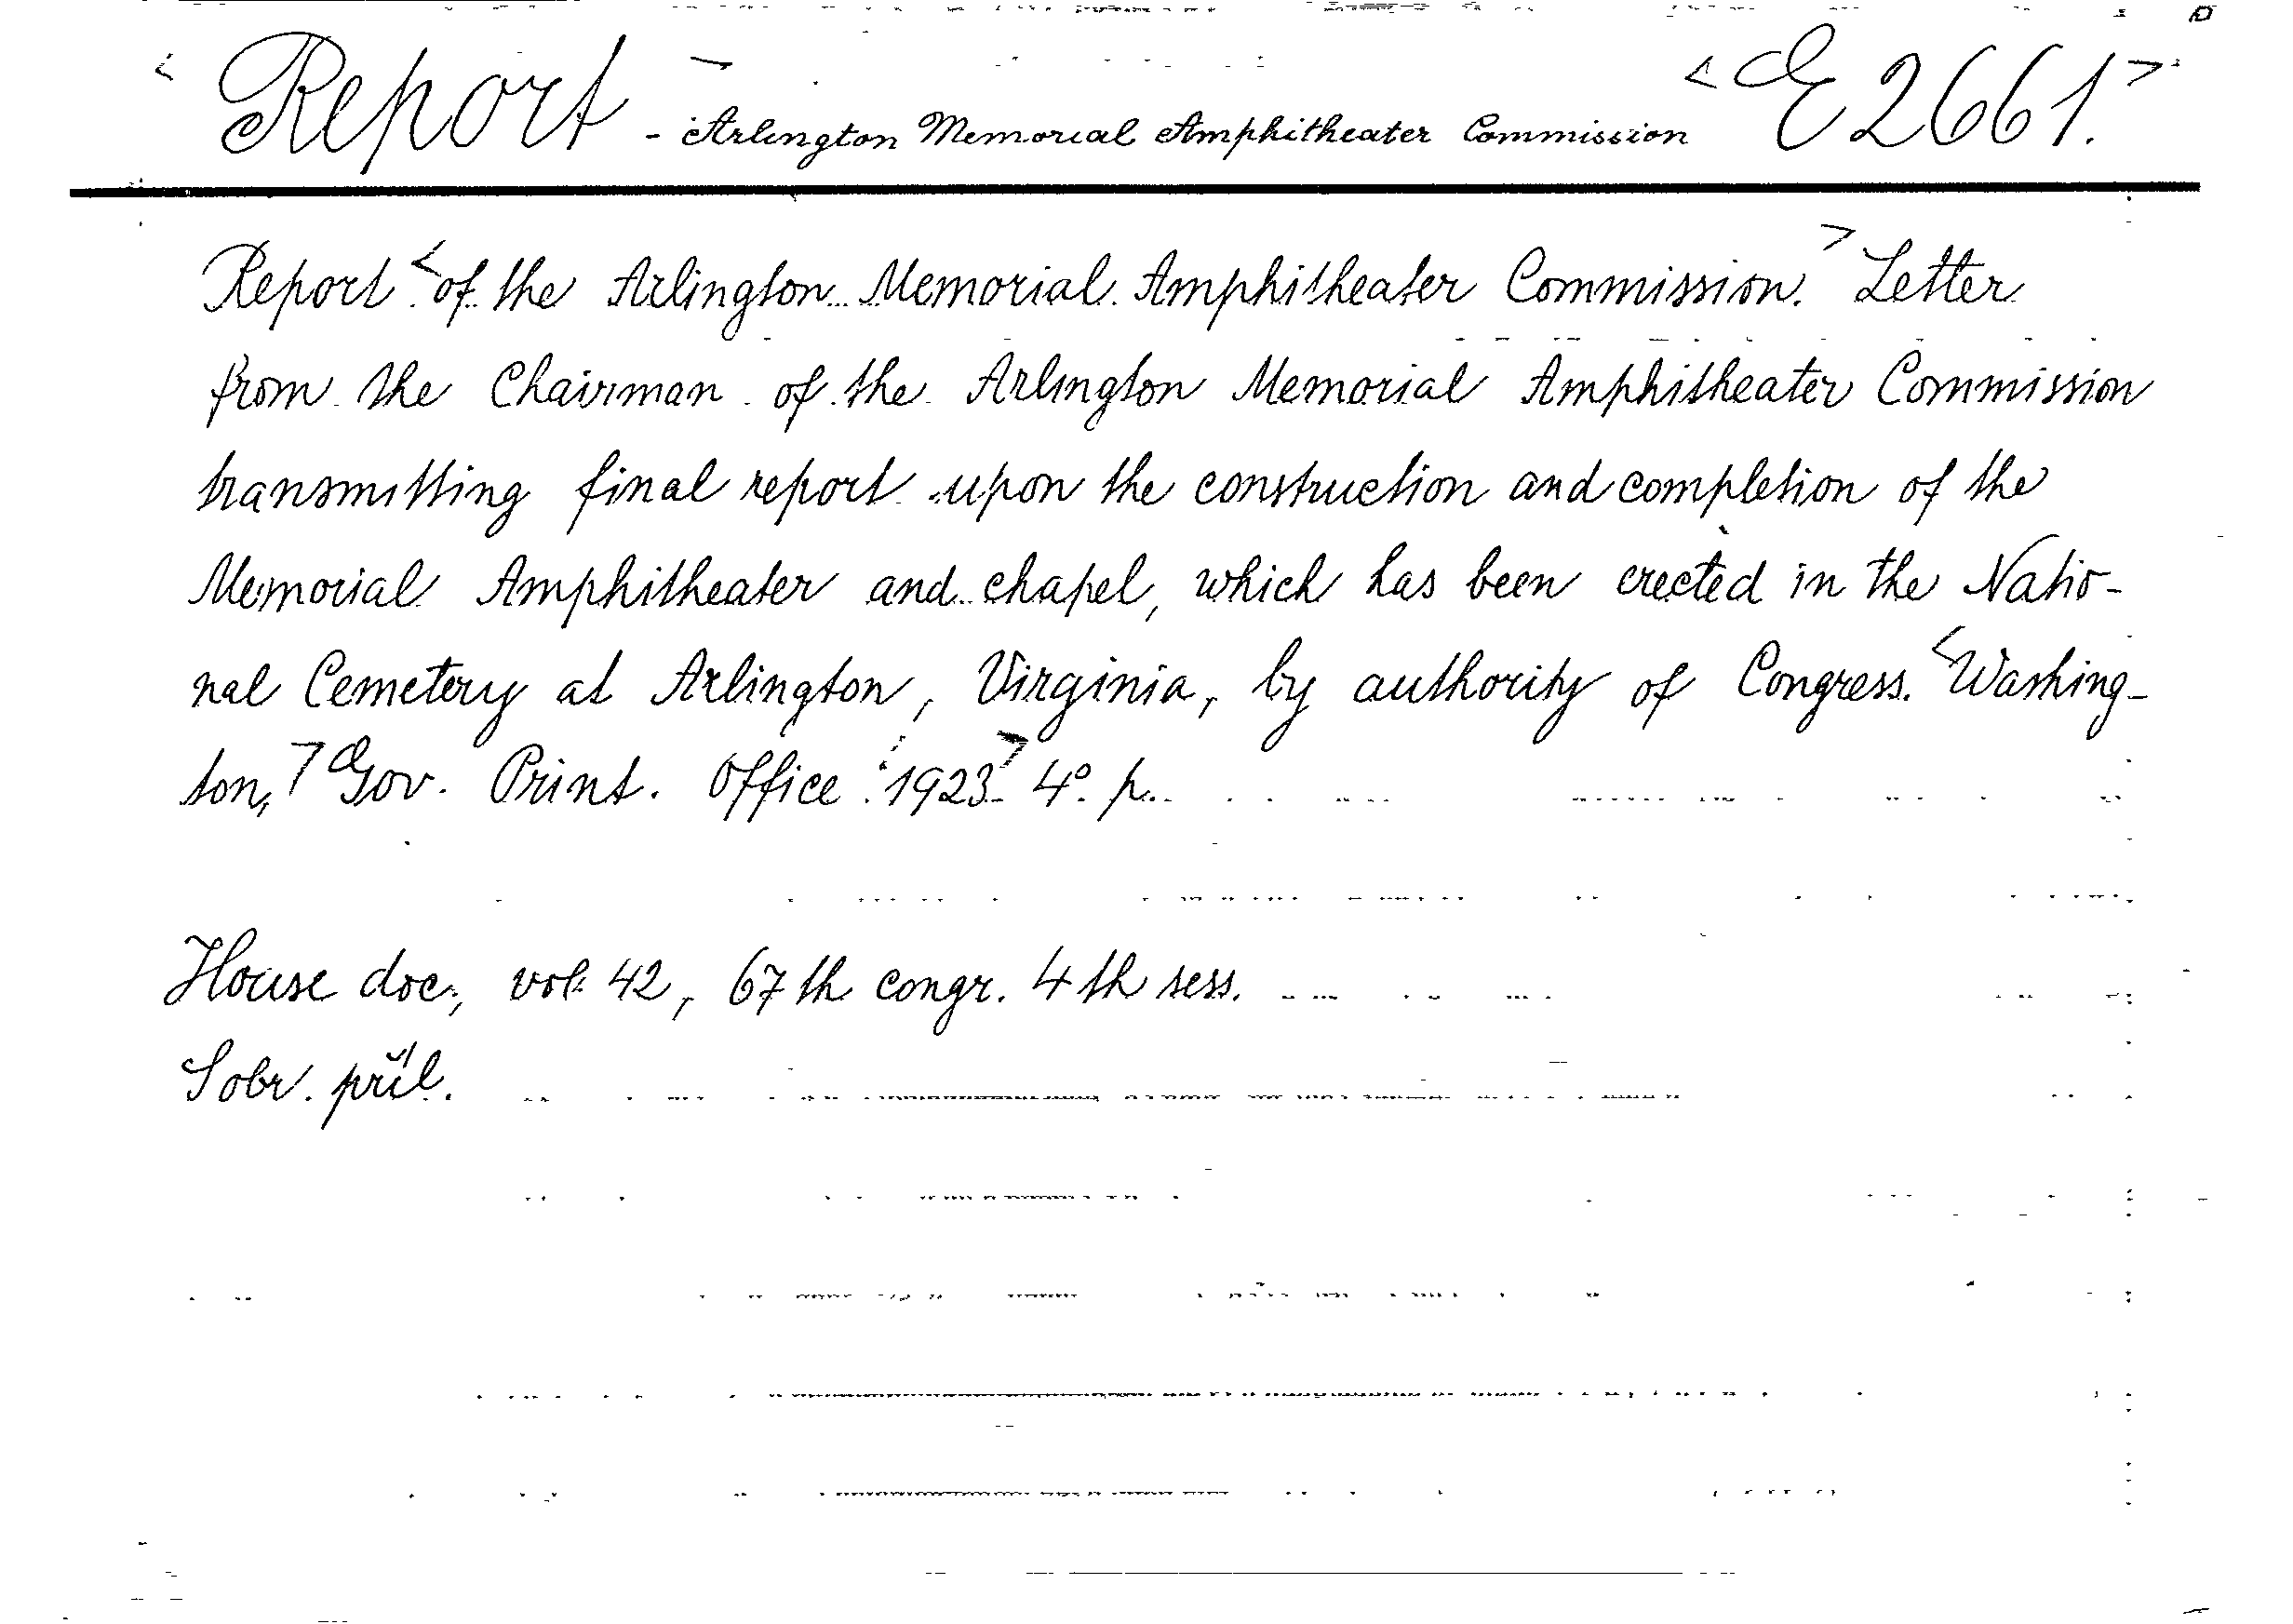 < Report - Arlington Memorial Amphitheater Commission < E 2661. >
Report < of the Arlington Memorial Amphitheater Commission. > Letter
from the Chairman of the Arlington Memorial Amphitheater Commission
transmitting final report upon the construction and completion of the
Memorial Amphitheater and chapel, which has been erected in the Natio-
nal Cemetery at Arlington, Virginia, by authority of Congress. < Washing-
ton, > Gov. Print. Office 1923 > 4° p.
House doc., vol. 42, 67th congr. 4th sess.
Sobr. příl.